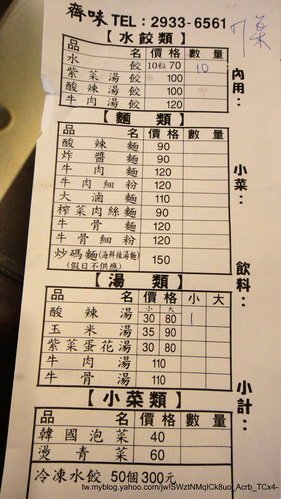 齊味 TEL：2933-6561
【水餃類】
品 名 價格 數量
水 餃 10粒 70 10
紫菜湯餃 100
酸辣湯餃 100
牛肉湯餃 120
【麵 類】
品 名 價格 數量
酸辣麵 90
炸醬麵 90
牛肉麵 120
牛肉細粉 120
大滷麵 110
榨菜肉絲麵 90
牛骨麵 120
牛骨細粉 120
炒碼麵(海鮮辣湯麵)
(假日不供應) 150
【湯 類】
品 名 價格 小 大
小 大
酸辣湯 30 80 1
玉米湯 35 90
紫菜蛋花湯 30 80
牛肉湯 110
牛骨湯 110
【小菜類】
品 名 價格 數量
韓國泡菜 40
燙青菜 60
冷凍水餃 50個300元
內用：
小菜：
飲料：
小計：